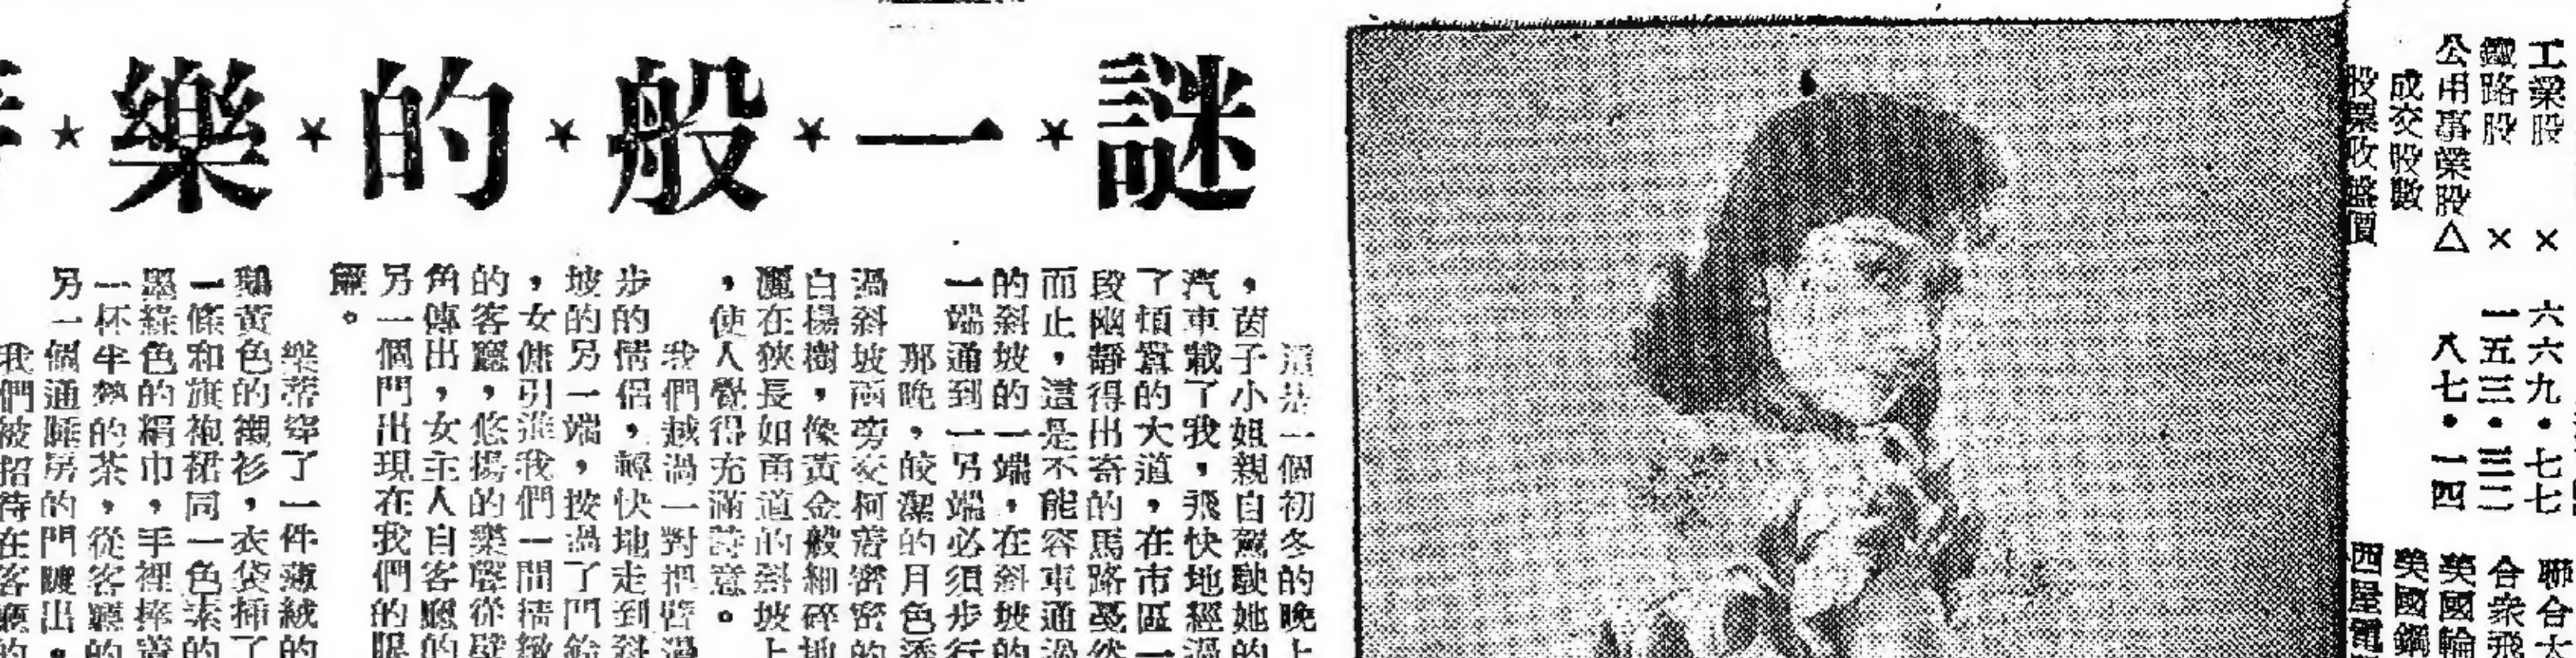 工業股　×　六六九・七七
鐵路股　×　一五三・三二
公用事業股△　八七・一四
成交股數
股票收盤價
聯合
合衆飛
美國輪
美國鋼
西屋電
謎★一★般★的★樂★
這是一個初冬的晚上
，茵子小姐親自駕駛她的
汽車載了我，飛快地經過
了煩囂的大道，在市區一
段幽靜得出奇的馬路戞然
而止，這是不能容車通過
的斜坡的一端，在斜坡的
一端通到一另端必須步行
那晚，皎潔的月色透
過斜坡兩旁交柯着密密的
白楊樹，像黃金般細碎地
灑在狹長如甬道的斜坡上
，使人覺得充滿詩意。
我們越過一對把臂過
步的情侶，輕快地走到斜
坡的另一端，按過了門鈴
，女傭引進我們一間精緻
的客廳，悠揚的樂聲從壁
角傳出，女主人自客廳的
另一個門出現在我們的眼
簾。
樂蒂穿了一件薄絨的
鵝黃色的襯衫，衣袋揷了
一條和旗袍裙同一色素的
墨綠色的絹巾，手裡捧着
一杯半熱的茶，從客廳的
另一個通睡房的門踱出。
我們被招待在客廳的